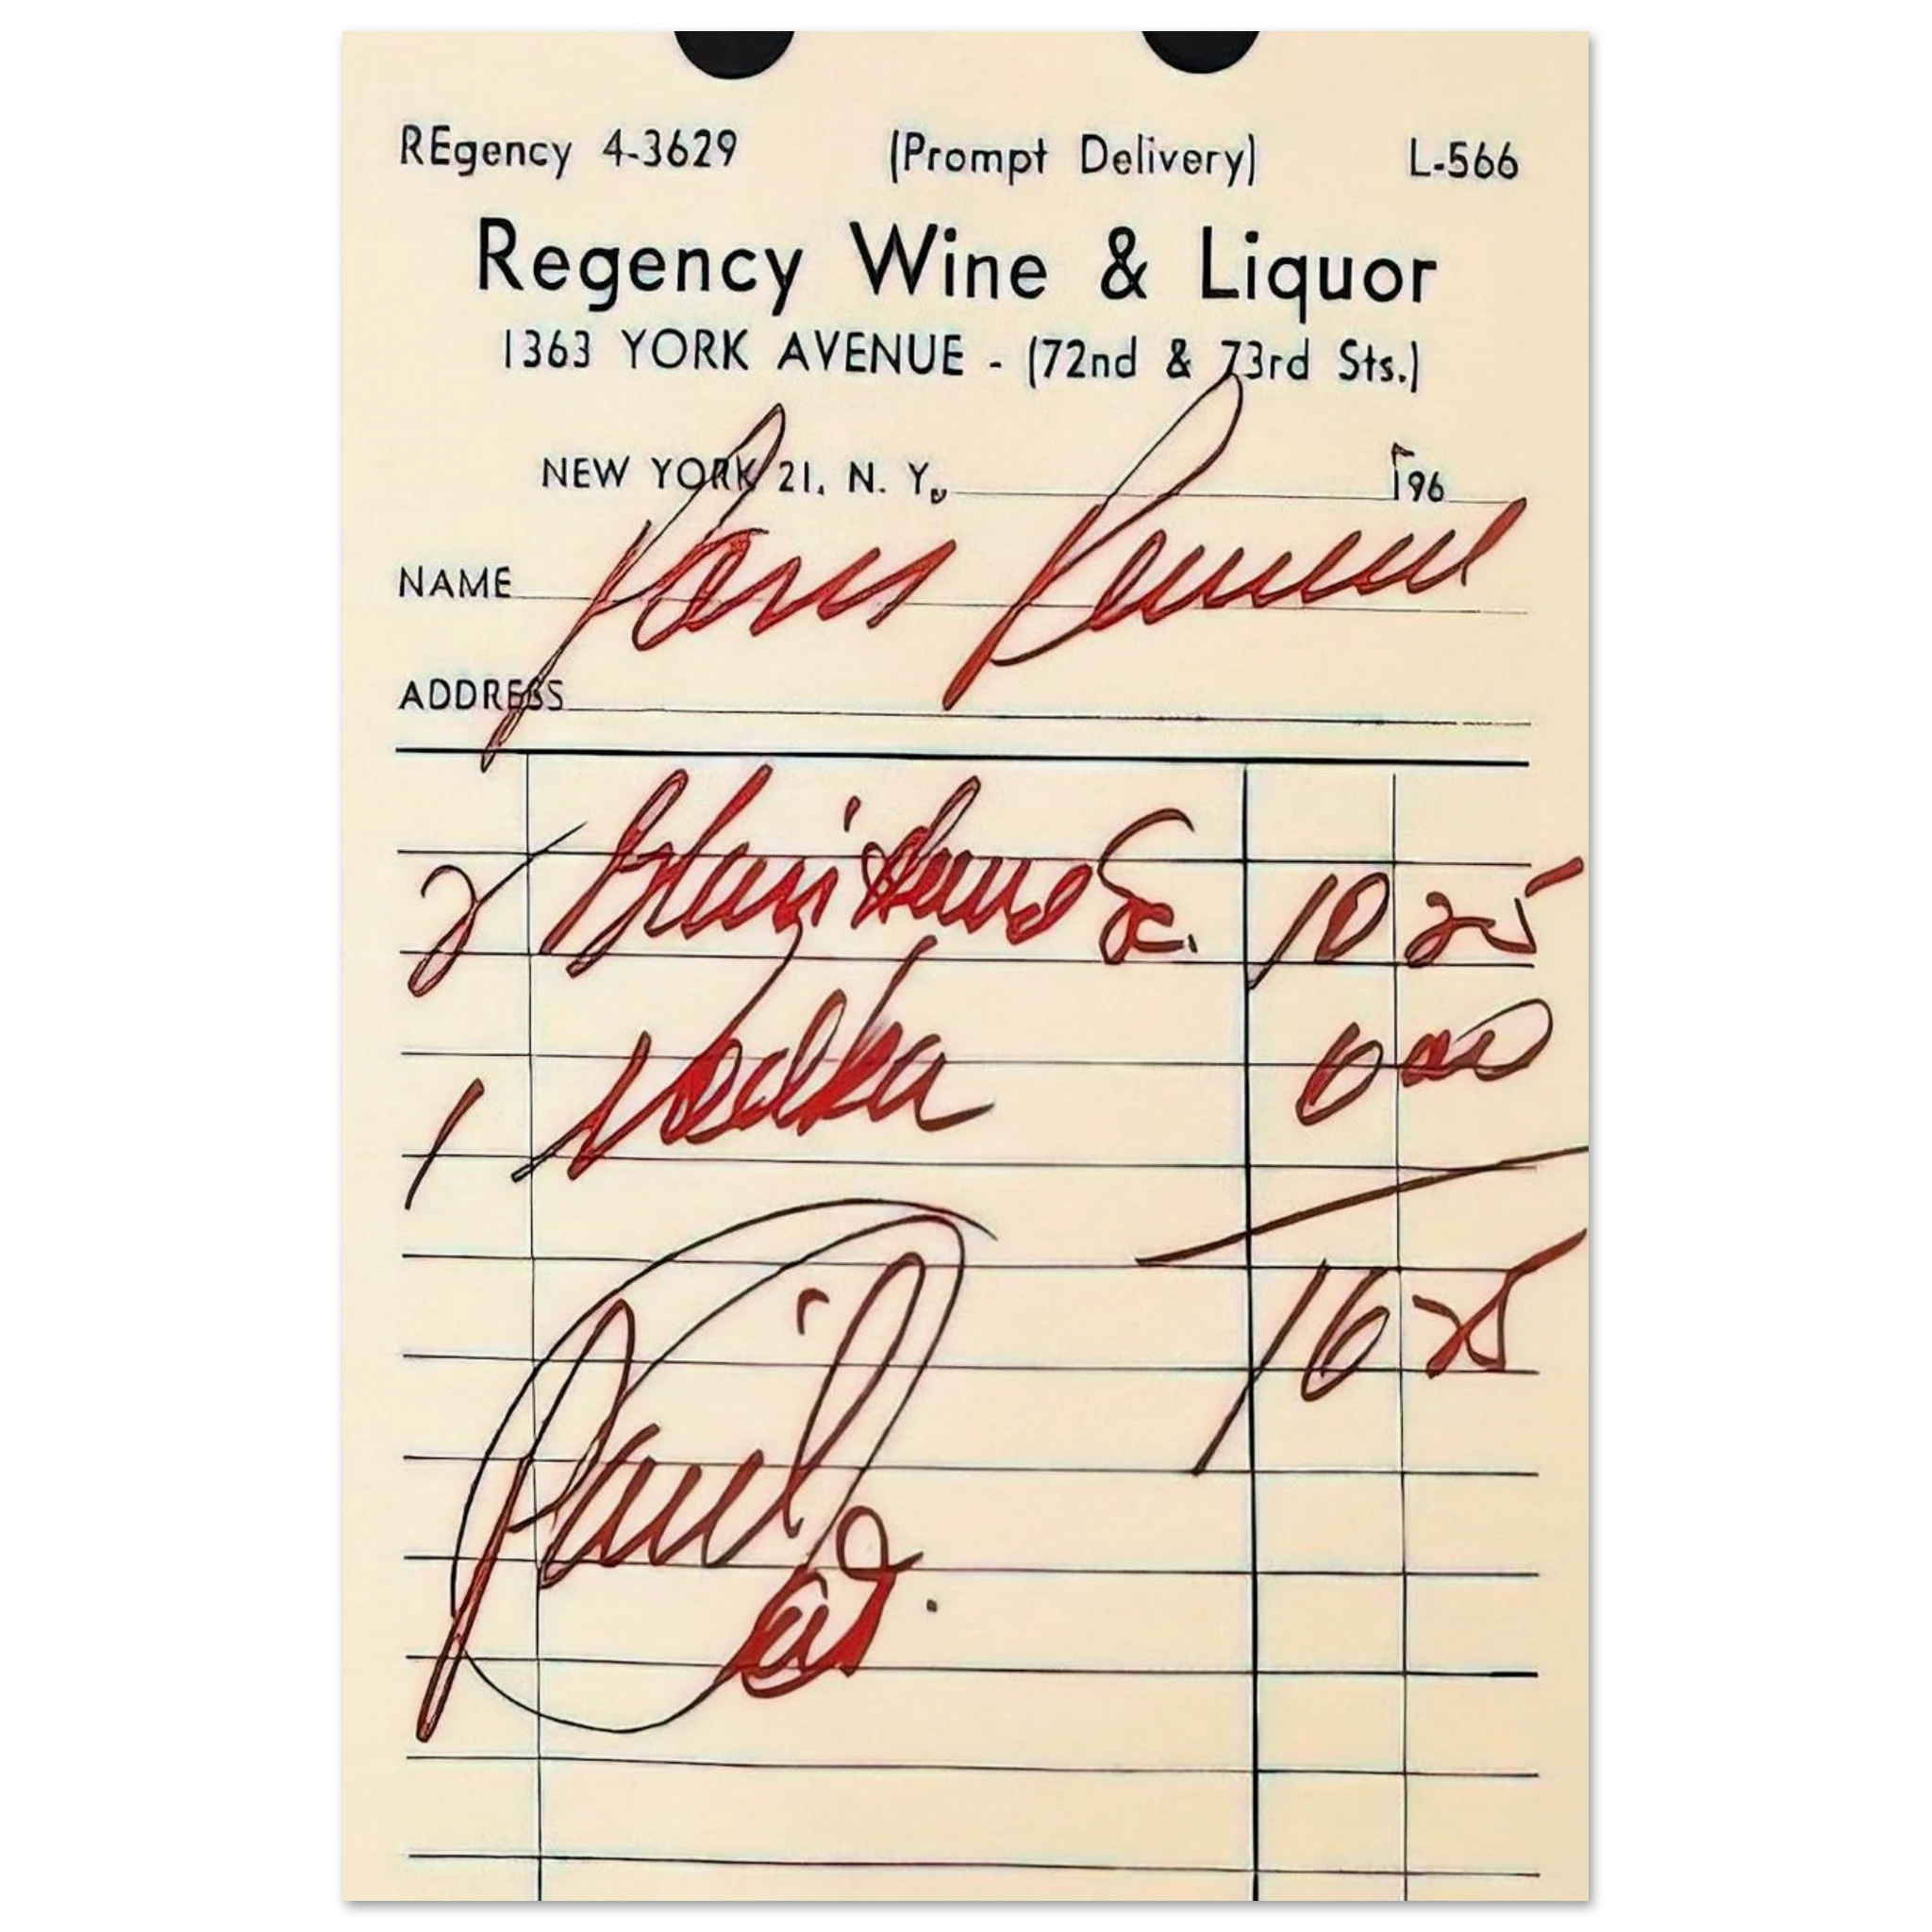 REgency 4-3629 (Prompt Delivery) L-566
Regency Wine & Liquor
1363 YORK AVENUE - (72nd & 73rd Sts.)
NEW YORK 21, N. Y., 196
NAME Paris
ADDRESS
2 10 25
1 Vodka 6 00
16 25
Paid